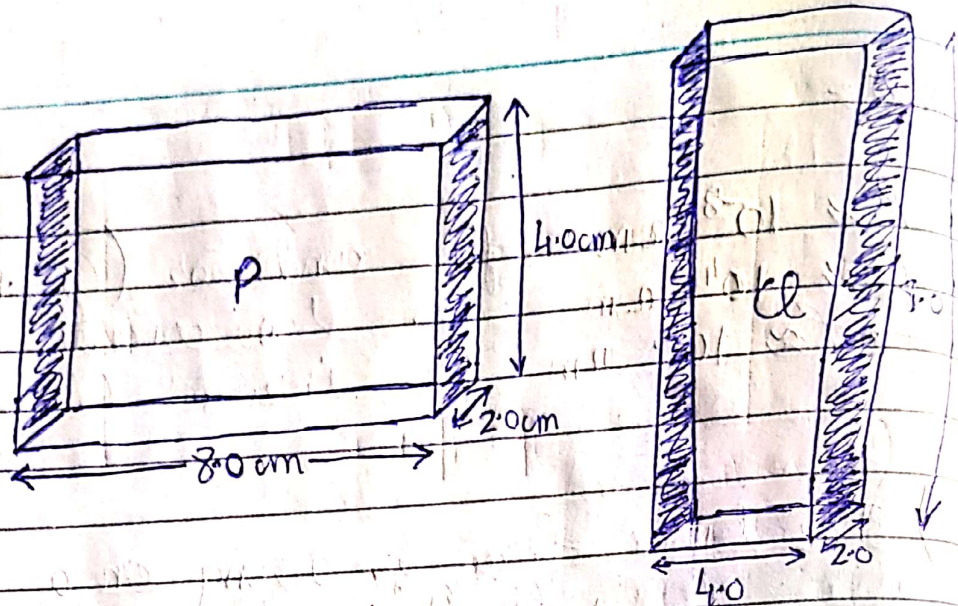 P
4.0cm
2.0cm
8.0cm
Q
8.0
2.0
4.0